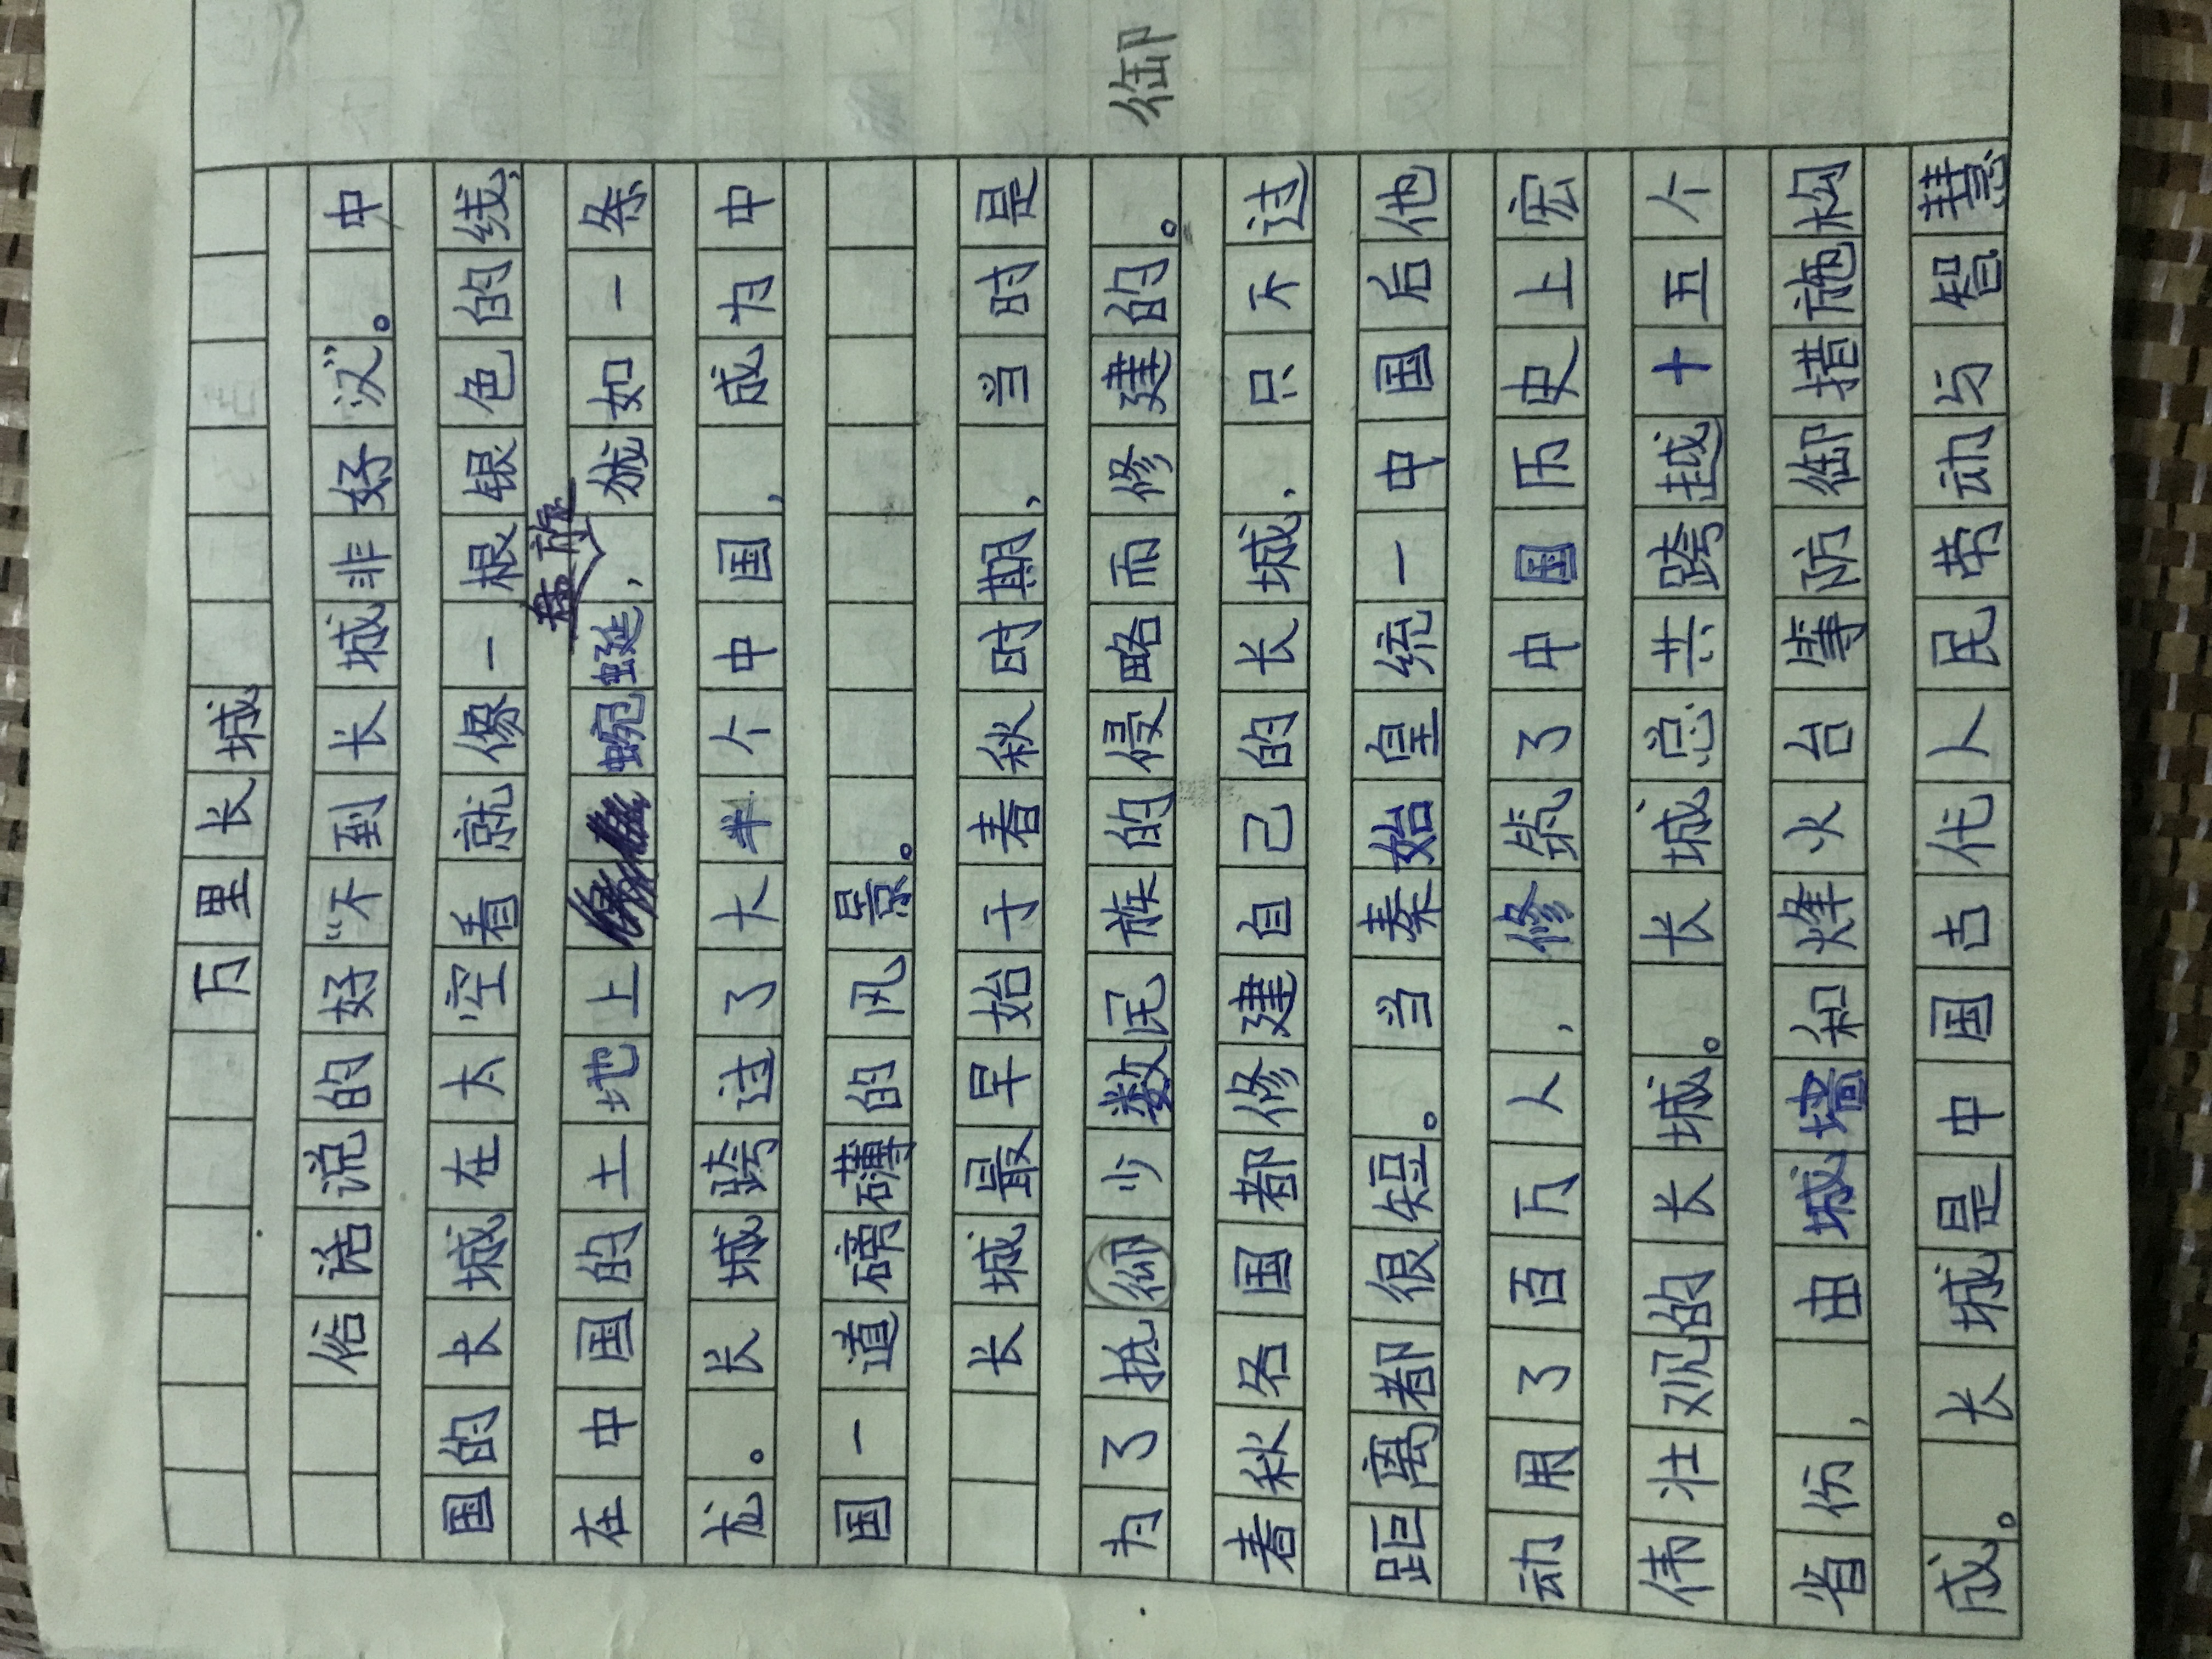 万里长城
俗话说的好“不到长城非好汉”。中
国的长城在太空看就像一根银色的线,
盘旋
在中国的土地上蜿蜒,犹如一条
龙。长城跨过了大半个中国,成为中
国一道磅礴的风景。
长城最早始于春秋时期,当时是
为了抵御少数民族的侵略而修建的。
御
春秋各国都修建自己的长城,只不过
距离都很短。当秦始皇统一中国后他
动用了百万人,修筑了中国历史上宏
伟壮观的长城。长城总共跨越十五个
省份,由城墙和烽火台等防御措施构
成。长城是中国古代人民劳动与智慧